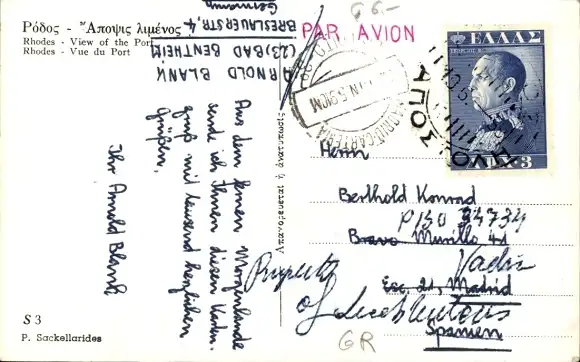 Ρόδος - Ἄποψις λιμένος
Rhodes - View of the Port
Rhodes - Vue du Port
ARNOLD BLANK
(23) BAD BENTHEIM
BRESLAUERSTR, 4
Germany
Aus dem fernen Morgenlande
sende ich Ihnen diesen Karten-
gruß mit tausend herzlichen
Grüßen,
Ihr Arnold Blank
S 3
P. Sackellarides
66-
PAR AVION
ΕΛΛΑΣ
ΔΡΧ 3
Herrn
Berthold Konrad
P130 34734
Bravo Murillo 41
Esc. 21, Madrid
Spanien
GR